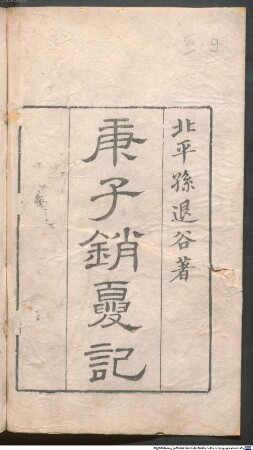 北平孫退谷著
庚子銷夏記
9